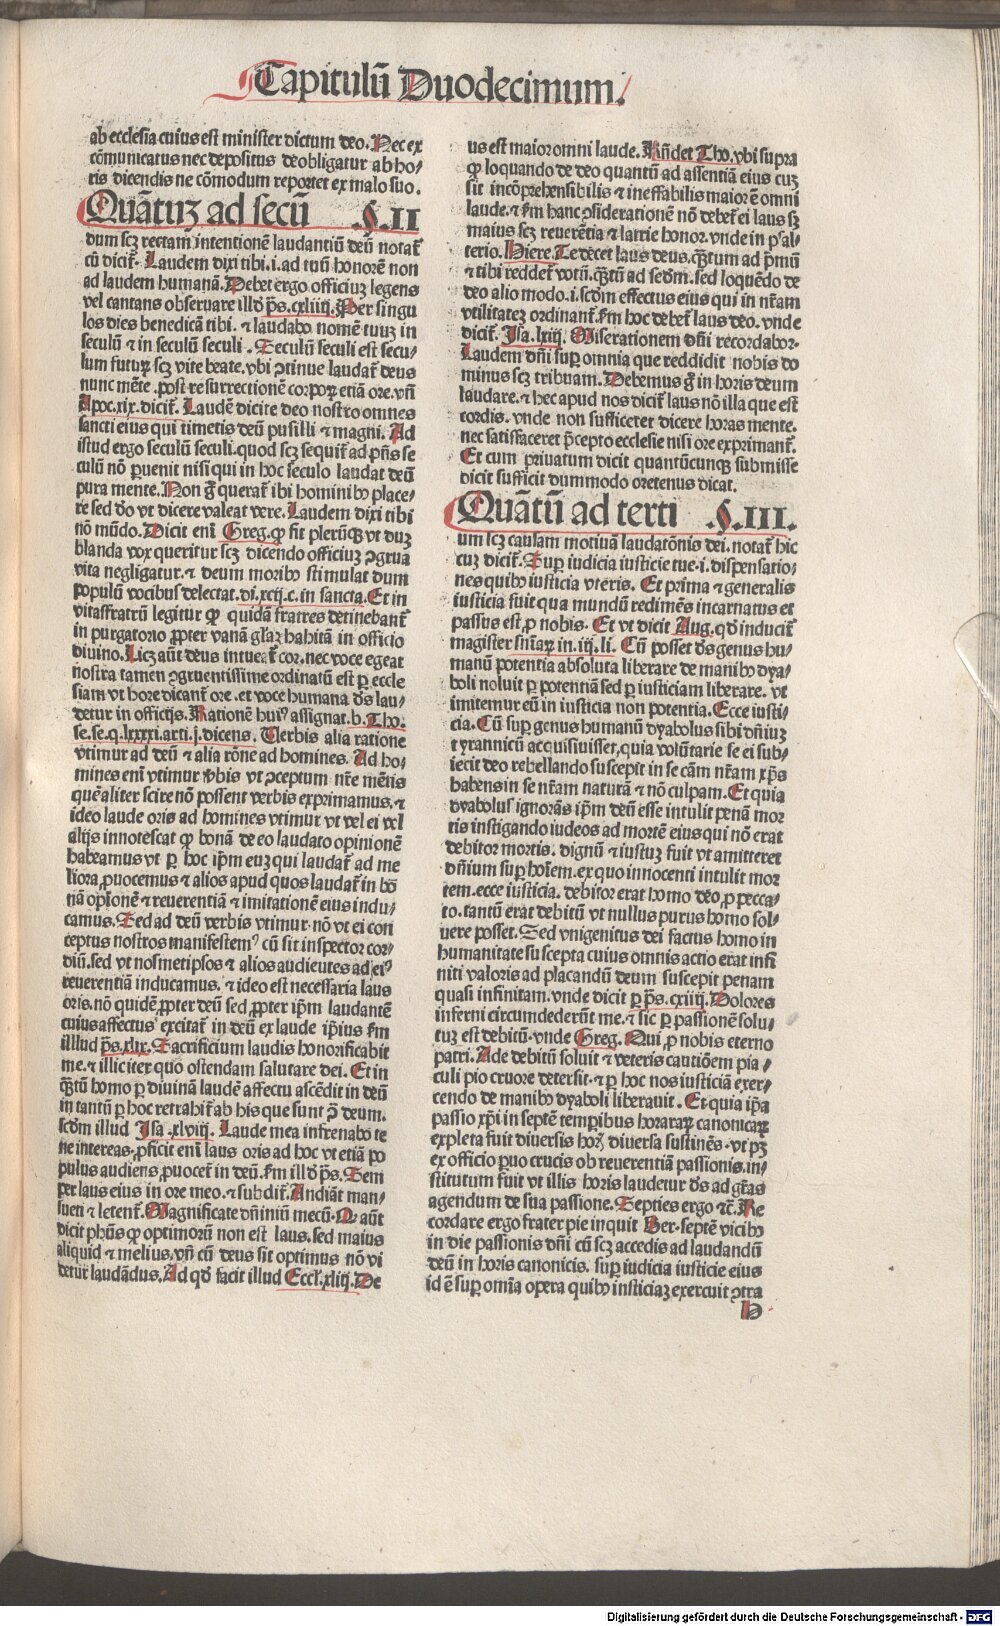 Capitulū Duodecimum.
ab ecclesia cuius est minister dictum deo. Nec ex
cōmunicatus nec depositus deobligatur ab ho/
ris dicendis ne cōmodum reportet ex malo suo.
Quātuꝫ ad secū §.II
dum scꝫ rectam intentionē laudantiū deū notat̄
cū dicit̄. Laudem dixi tibi .i. ad tuū honorē non
ad laudem humanā. Debet ergo officiuꝫ legens
vel cantans obseruare illđ p̄s. cxliiij. Per singu
los dies benedicā tibi. ⁊ laudabo nomē tuuꝫ in
seculū ⁊ in seculū seculi. Seculū seculi est secu/
lum futuꝝ scꝫ vite beate. vbi ꝯtinue laudat̄ deus
nunc mēte .post resurrectionē corpoꝝ etiā ore. vn̄
Apoc. xix. dicit̄. Laudē dicite deo nostro omnes
sancti eius qui timetis deū pusilli ⁊ magni. Ad
istud ergo seculū seculi. quod scꝫ sequit̄ ad pn̄s se
culū nō ꝑuenit nisi qui in hoc seculo laudat deū
pura mente. Non g̊ querat̄ ibi hominibꝰ place/
re sed đo vt dicere valeat vere. Laudem dixi tibi
nō mūdo. Dicit eni Greg. ꝙ fit plerūqꝫ vt duꝫ
blanda vox queritur scꝫ dicendo officiuꝫ ꝯgrua
vita negligatur. ⁊ deum moribꝰ stimulat dum
populū vocibus delectat. di. xcij. c. in sancta. Et in
vitaffratrū legitur ꝙ quidā fratres detinebant̄
in purgatorio ꝓpter vanā gl'aꝫ habitā in officio
diuino. Licꝫ aūt deus intueat̄ cor. nec voce egeat
nostra tamen ꝯgruentissime ordinatū est ꝑ eccle
siam vt hore dicant̄ ore. et voce humana đs lau/
detur in officijs. Rationē huiꝰ assignat. b. Tho.
se. se. q. lxxxxi. arti. j. dicens. Verbis alia ratione
vtimur ad deū ⁊ alia rōne ad homines. Ad ho/
mines eni vtimur ꝟbis vt ꝯceptum nr̄e mētis
quē aliter scire nō possent verbis exprimamus. ⁊
ideo laude oris ad homines vtimur vt vel ei vel
alijs innotescat ꝙ bonā de eo laudato opinionē
habeamus vt ꝑ hoc ip̄m euꝫ qui laudat̄ ad me
liora ꝓuocemus ⁊ alios apud quos laudat̄ in bō
nā opi̇onē ⁊ reuerentiā ⁊ imitationē eius indu/
camus. Sed ad deū verbis vtimur. nō vt ei con
ceptus nostros manifestemꝰ cū sit inspector cor/
diū. sed vt nosmetipsos ⁊ alios audieutes ad eiꝰ
reuerentiā inducamus. ⁊ ideo est necessaria laus
oris. nō quidē ꝓpter deū sed ꝓpter ip̄m laudantē
cuius affectus excitat̄ in deū ex laude ip̄ius. km̄
illlud p̄s. xlix. Sacrificium laudis honorificabit
me. ⁊ illic iter quo ostendam salutare dei. Et in
qꝫtū homo ꝑ diuinā laudē affectu ascēdit in deū
in tantū ꝑ hoc retrahit̄ ab his que sunt ꝯ̄ deum.
scđm illud Isa. xlviij. Laude mea infrenabo te
ne intereas. ꝓficit eni laus oris ad hoc vt etiā po
pulus audiens ꝓuocet̄ in deū. km̄ illđ p̄s. Sem
per laus eius in ore meo. ⁊ subdit̄. Audiāt man/
sueti ⁊ letent̄. Magnificate dn̄iniū mecū. Qꝫ aūt
dicit ph̄us ꝙ optimorū non est laus. sed maius
aliquid ⁊ melius. vn̄ cū deus sit optimus nō vi
detur laudādus. Ad qđ facit illud Eccl. xliij. De
us est maior omni laude. Rn̄det Tho. vbi supra
ꝙ loquando de deo quantū ad assentiā eius cuꝫ
sit incōprehensibilis ⁊ ineffabilis maior ē omni
laude. ⁊ km̄ hanc ꝯsiderationē nō debet̄ ei laus sꝫ
maius scꝫ reuerētia ⁊ latrie honor. vnde in p'sal/
terio. Hiere. Te decet laus deus. qꝫtum ad pͥmū
⁊ tibi reddet̄ votū. qꝫtū ad seđm. sed loquēdo de
deo alio modo .i. scđm effectus eius qui in nr̄am
vtilitateꝫ ordinant̄. km̄ hoc debet̄ laus deo. vnde
dicit̄. Isa. lxiij. Miserationem dn̄i recordabor.
Laudem dn̄i suꝑ omnia que reddidit nobis do
minus scꝫ tribuam. Debemus g̊ in horis deum
laudare. ⁊ hec apud nos dicit̄ laus nō illa que est
cordis. vnde non sufficeret dicere horas mente.
nec satisfaceret p̄cepto ecclesie nisi ore exprimant̄.
Et cum priuatum dicit quantūcunqꝫ submisse
dicit sufficit dummodo oretenus dicat.
Quātū ad terti §.III.
um scꝫ causam motiuā laudatōnis dei. notat̄ hic
cuꝫ dicit̄. Suꝑ iudicia iusticie tue .i. dispensatio/
nes quibꝰ iusticia vteris. Et prima ⁊ generalis
iusticia fuit qua mundū redimēs incarnatus et
passus est ꝓ nobis. Et vt dicit Aug. qđ inducit̄
magister sniaꝝ in. iij. li. Cū posset đs genus hu/
manū potentia absoluta liberare de manibꝰ dya/
boli noluit ꝑ potentiā sed ꝑ iusticiam liberare. vt
imitemur eū in iusticia non potentia. Ecce iusti/
cia. Cū suꝑ genus humanū dyabolus sibi dn̄iuꝫ
tyrannicū acquisiuisset, quia volūtarie se ei sub/
iecit deo rebellando suscepit in se cām nr̄am xp̄s
habens in se nr̄am naturā ⁊ nō culpam. Et quia
dyabolus ignorās ip̄m deū esse intulit penā mor
tis instigando iudeos ad mortē eius qui nō erat
debitor mortis. dignū ⁊ iustuꝫ fuit vt amitteret
dn̄ium suꝑ hoi̇em. ex quo innocenti intulit mor
tem. ecce iusticia. debitor erat homo deo ꝓ pecca/
to. tantū erat debitū vt nullus purus homo sol/
uere posset. Sed vnigenitus dei factus homo in
humanitate suscepta cuius omnis actio erat infi
niti valoris ad placandū deum suscepit penam
quasi infinitam. vnde dicit ꝑ p̄s. cxiiij. Dolores
inferni circumdederūt me. ⁊ sic ꝑ passionē solu/
tuꝫ est debitū. vnde Greg. Qui ꝓ nobis eterno
patri. Ade debitū soluit ⁊ veteris cautiōem pia/
culi pio cruore detersit. ⁊ ꝑ hoc nos iusticiā exer/
cendo de manibꝰ dyaboli liberauit. Et quia ip̄a
passio xp̄i in septē temꝑibus horaraꝝ canonicaꝝ
expleta fuit diuersis hoꝝ diuersa sustinēs. vt pꝫ
ex officio ꝑuo crucis ob reuerentiā passionis. in/
stitutum fuit vt illis horis laudetur đs ad gr̄as
agendum de sua passione. Septies ergo ⁊c̄. Re
cordare ergo frater pie inquit Ber. septē vicibꝰ
in die passionis dn̄i cū scꝫ accedis ad laudandū
deū in horis canonicis. suꝑ iudicia iusticie eius
id ē suꝑ omi̇a opera quibꝰ insticiaꝫ exercuit ꝯtra
h
Digitalisierung gefördert durch die Deutsche Forschungsgemeinschaft - DFG